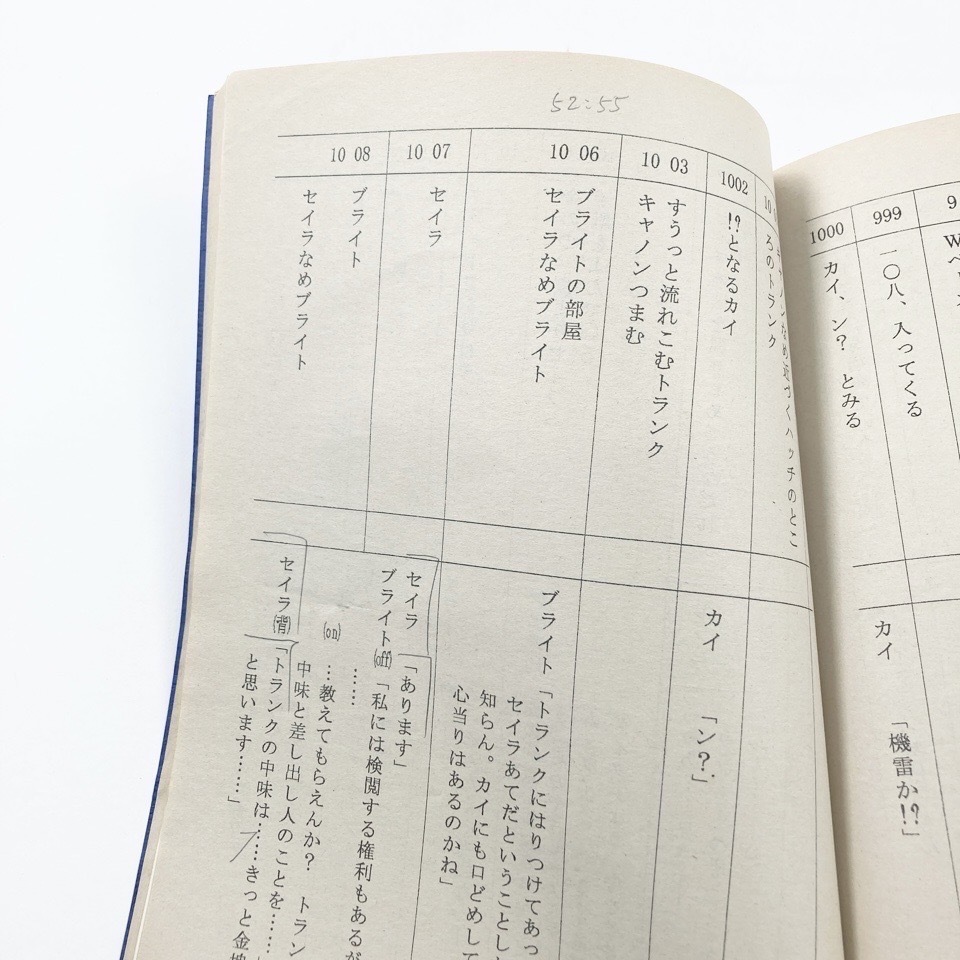 52:55
9
W
999
一〇八、入ってくる
1000
カイ、ン？ とみる
カイ 「機雷か!?」
ろのトランク
1002
!?となるカイ
カイ 「ン？」
10 03
すうっと流れこむトランク
キャノンつまむ
10 06
ブライトの部屋
セイラなめブライト
ブライト「トランクにはりつけてあっ
セイラあてだということし
知らん。カイにも口どめして
心当りはあるのかね」
10 07
セイラ
セイラ 「あります」
ブライト(off)「私には検閲する権利もあるが
……
10 08
ブライト
セイラなめブライト
(on) …教えてもらえんか？ トラン
中味と差し出し人のことを……」
セイラ(背)「トランクの中味は……きっと金塊
と思います……」